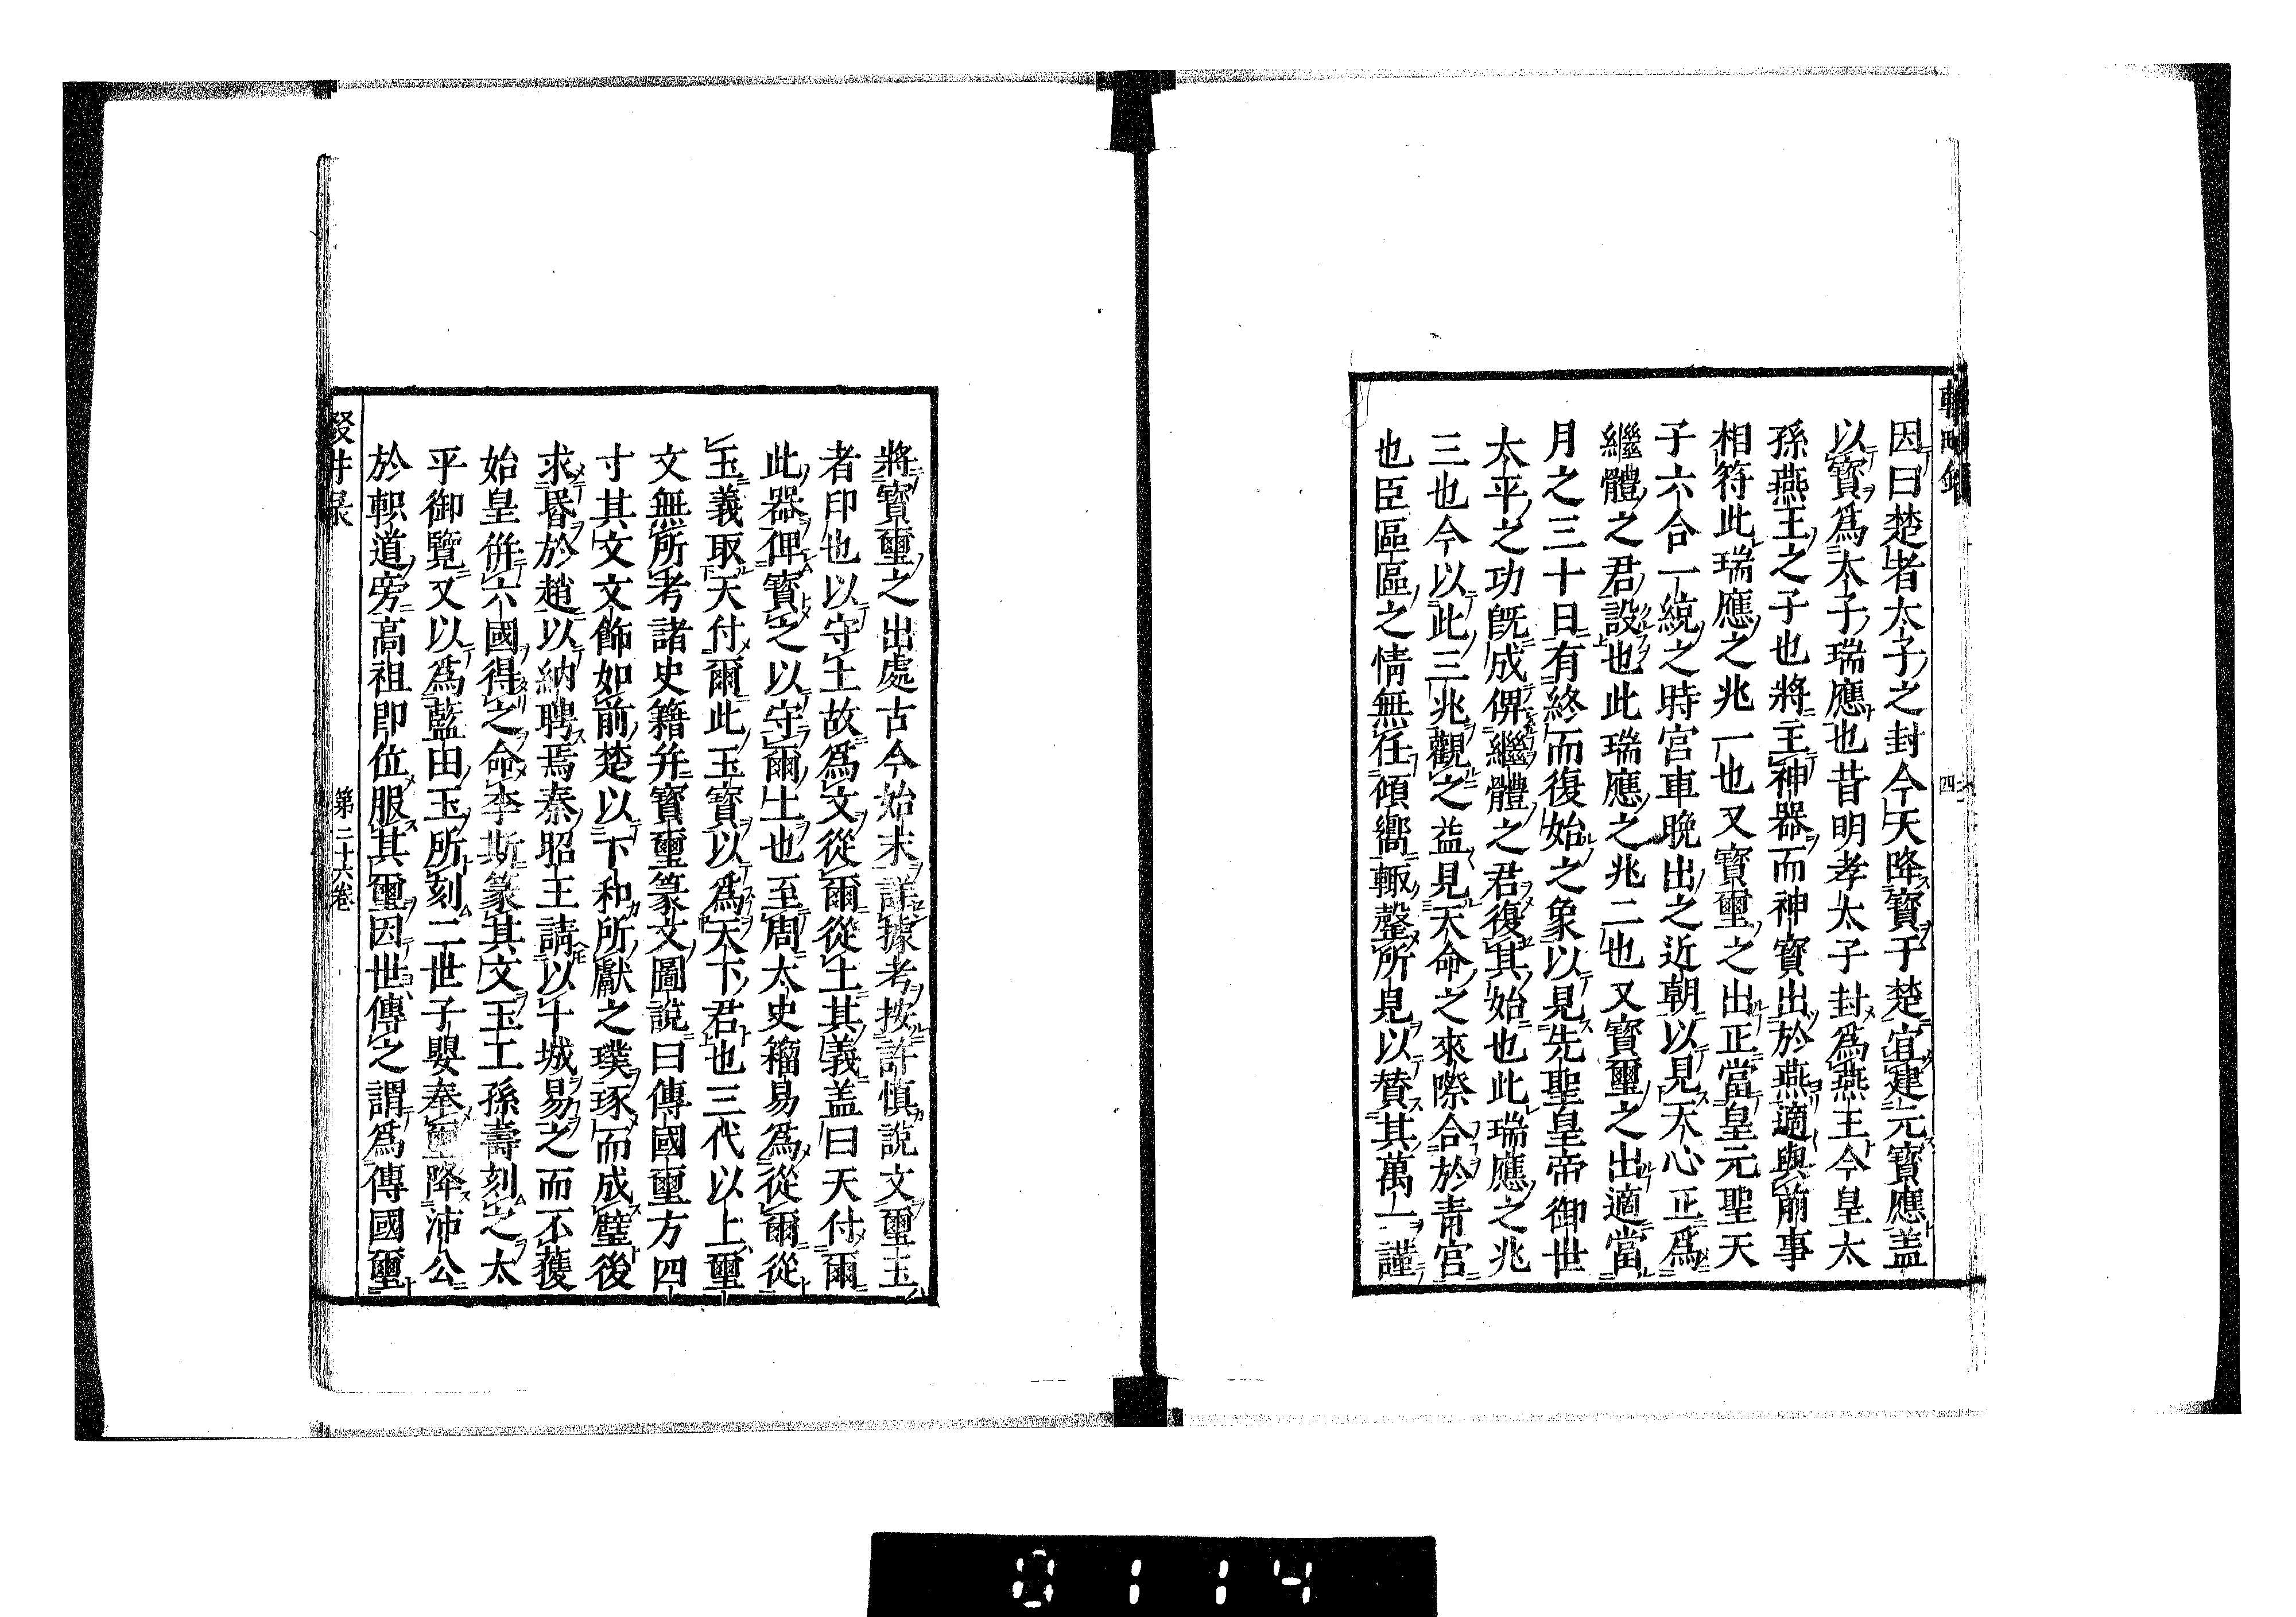 因曰楚者太子之封今天降寶于楚宜建元寶應盖
以寶爲太子瑞應也昔明孝太子封爲燕王今皇太
孫燕王之子也將主神器而神寶出於燕適與前事
相符此瑞應之兆一也又寶璽之出正當皇元聖天
子六合一統之時宮車晚出之近朝以見天心正爲
繼體之君設也此瑞應之兆二也又寶璽之出適當
月之三十日有終而復始之象以見先聖皇帝御世
太平之功既成俾繼體之君復其始也此瑞應之兆
三也今以此三兆觀之益見天命之來際合於青宮
也臣區區之情無任傾嚮輙罄所見以賛其萬一謹
將寶璽之出處古今始末詳據考按許慎說文璽王
者印也以守土故爲文從爾從土其義盖曰天付爾
此器俾寶之以守爾土也至周太史籀易爲從爾從
玉義取天付爾此玉寶以爲天下君也三代以上璽
文無所考諸史籍并寶璽篆文圖說曰傳國璽方四
寸其文文飾如前楚以卞和所獻之璞琢而成璧後
求昏於趙以納聘焉秦昭王請以十城易之而不獲
始皇併六國得之命李斯篆其文玉工孫壽刻之太
平御覽又以爲藍田玉所刻二世子嬰奉璽降沛公
於軹道旁高祖即位服其璽因世傳之謂爲傳國璽
第二十六卷
0114